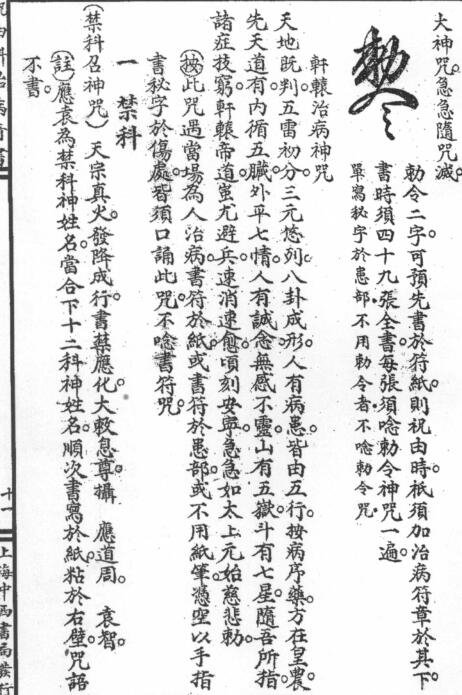 大神咒。急急隨咒滅。
勅令
勅令二字。可預先書於符紙。則祝由時。祇須加治病符章於其下。
書時須四十九張全書。每張須唸勅令神咒一遍。
單寫秘字於患部。不用勅令者。不唸勅令咒。
軒轅治病神咒
天地既判。五雷初分。三元悠列。八卦成形。人有病患。皆由五行。按病序藥。方在皇農。
先天道有。內循五臟。外平七情。人有誠念。無感不靈。山有五嶽。斗有七星。隨吾所指。
諸症技窮。軒轅帝道。蚩尤避兵。速消速愈。頃刻安寧。急急如太上元始慈悲勅。
(按)此咒遇當場為人治病。書符於紙。或書符於患部。或不用紙筆。憑空以手指
書秘字於傷處。皆須口誦此咒。不唸書符咒。
一 禁科
(禁科召神咒) 天宗真火。發降成行。書禁應化。大救息尊攝 應道周。袁智。
(註)應袁為禁科神姓名。當合下十二科神姓名。順次書寫於紙。粘於右壁。咒語
不書。
祝由科治病符書
十一
上海中西書局發行